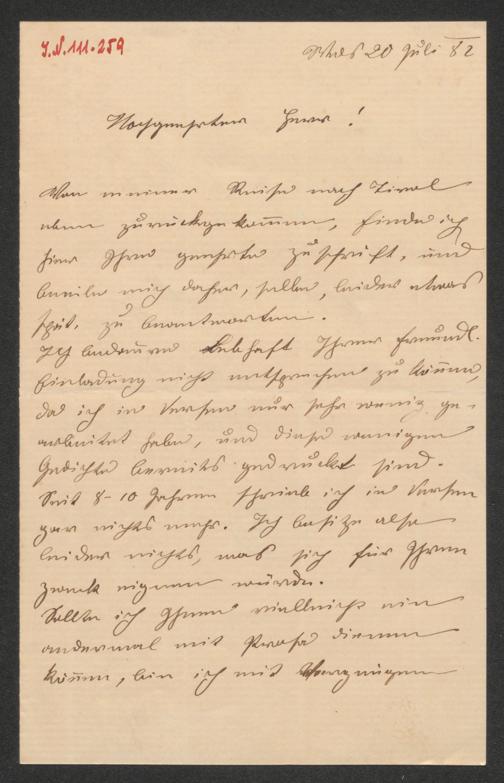 J.N. 111.259
20 Juli 82
Hochgeehrter Herr!
Von meiner Reise nach Tirol
eben zurückgekommen, finde ich
hier Ihre geehrte Zuschrift, und
beeile mich daher, selbe, leider etwas
spät, zu beantworten.
Ich bedaure lebhaft Ihrer freundl.
Einladung nicht entsprechen zu können,
da ich in Versen nur sehr wenig ge-
arbeitet habe, und diese wenigen
Gedichte bereits gedruckt sind.
Seit 8-10 Jahren schreibe ich in Versen
gar nichts mehr. Ich besitze also
leider nichts, was sich für Ihren
Zweck eignen würde.
Sollte ich Ihnen vielleicht ein
andermal mit Prosa dienen
können, bin ich mit Vergnügen